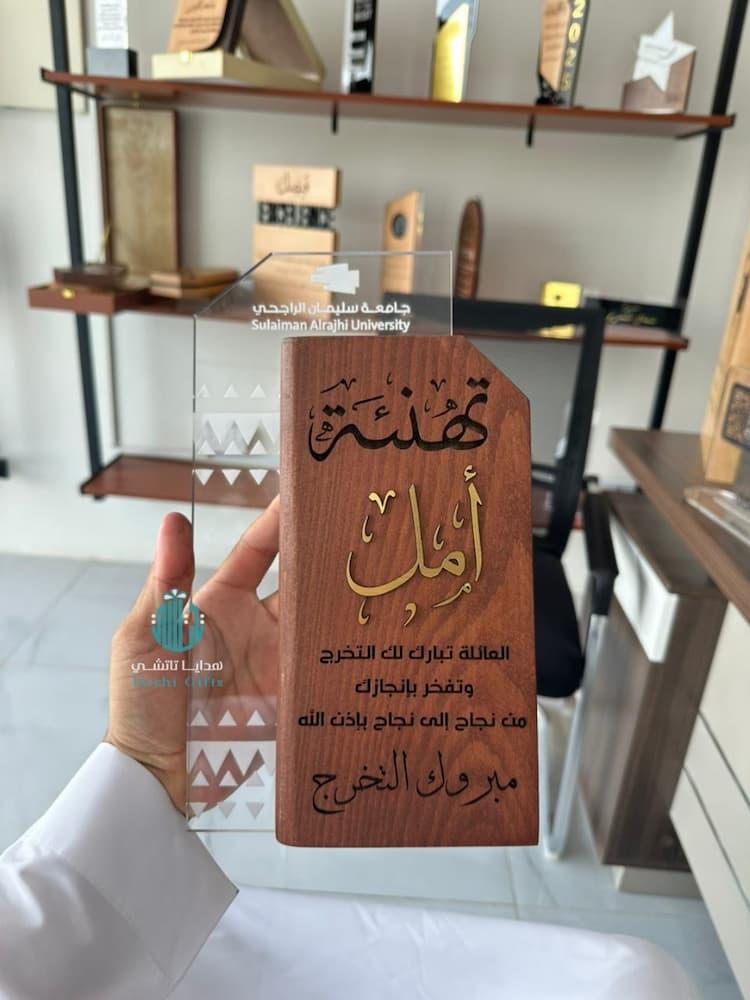 2025
EXCELLENCE
جامعة سليمان الراجحي
Sulaiman Alrajhi University
تهنئة
أمل
العائلة تبارك لك التخرج
وتفخر بإنجازك
من نجاح إلى نجاح بإذن الله
مبروك التخرج
هدايا تاتشي
Gifts